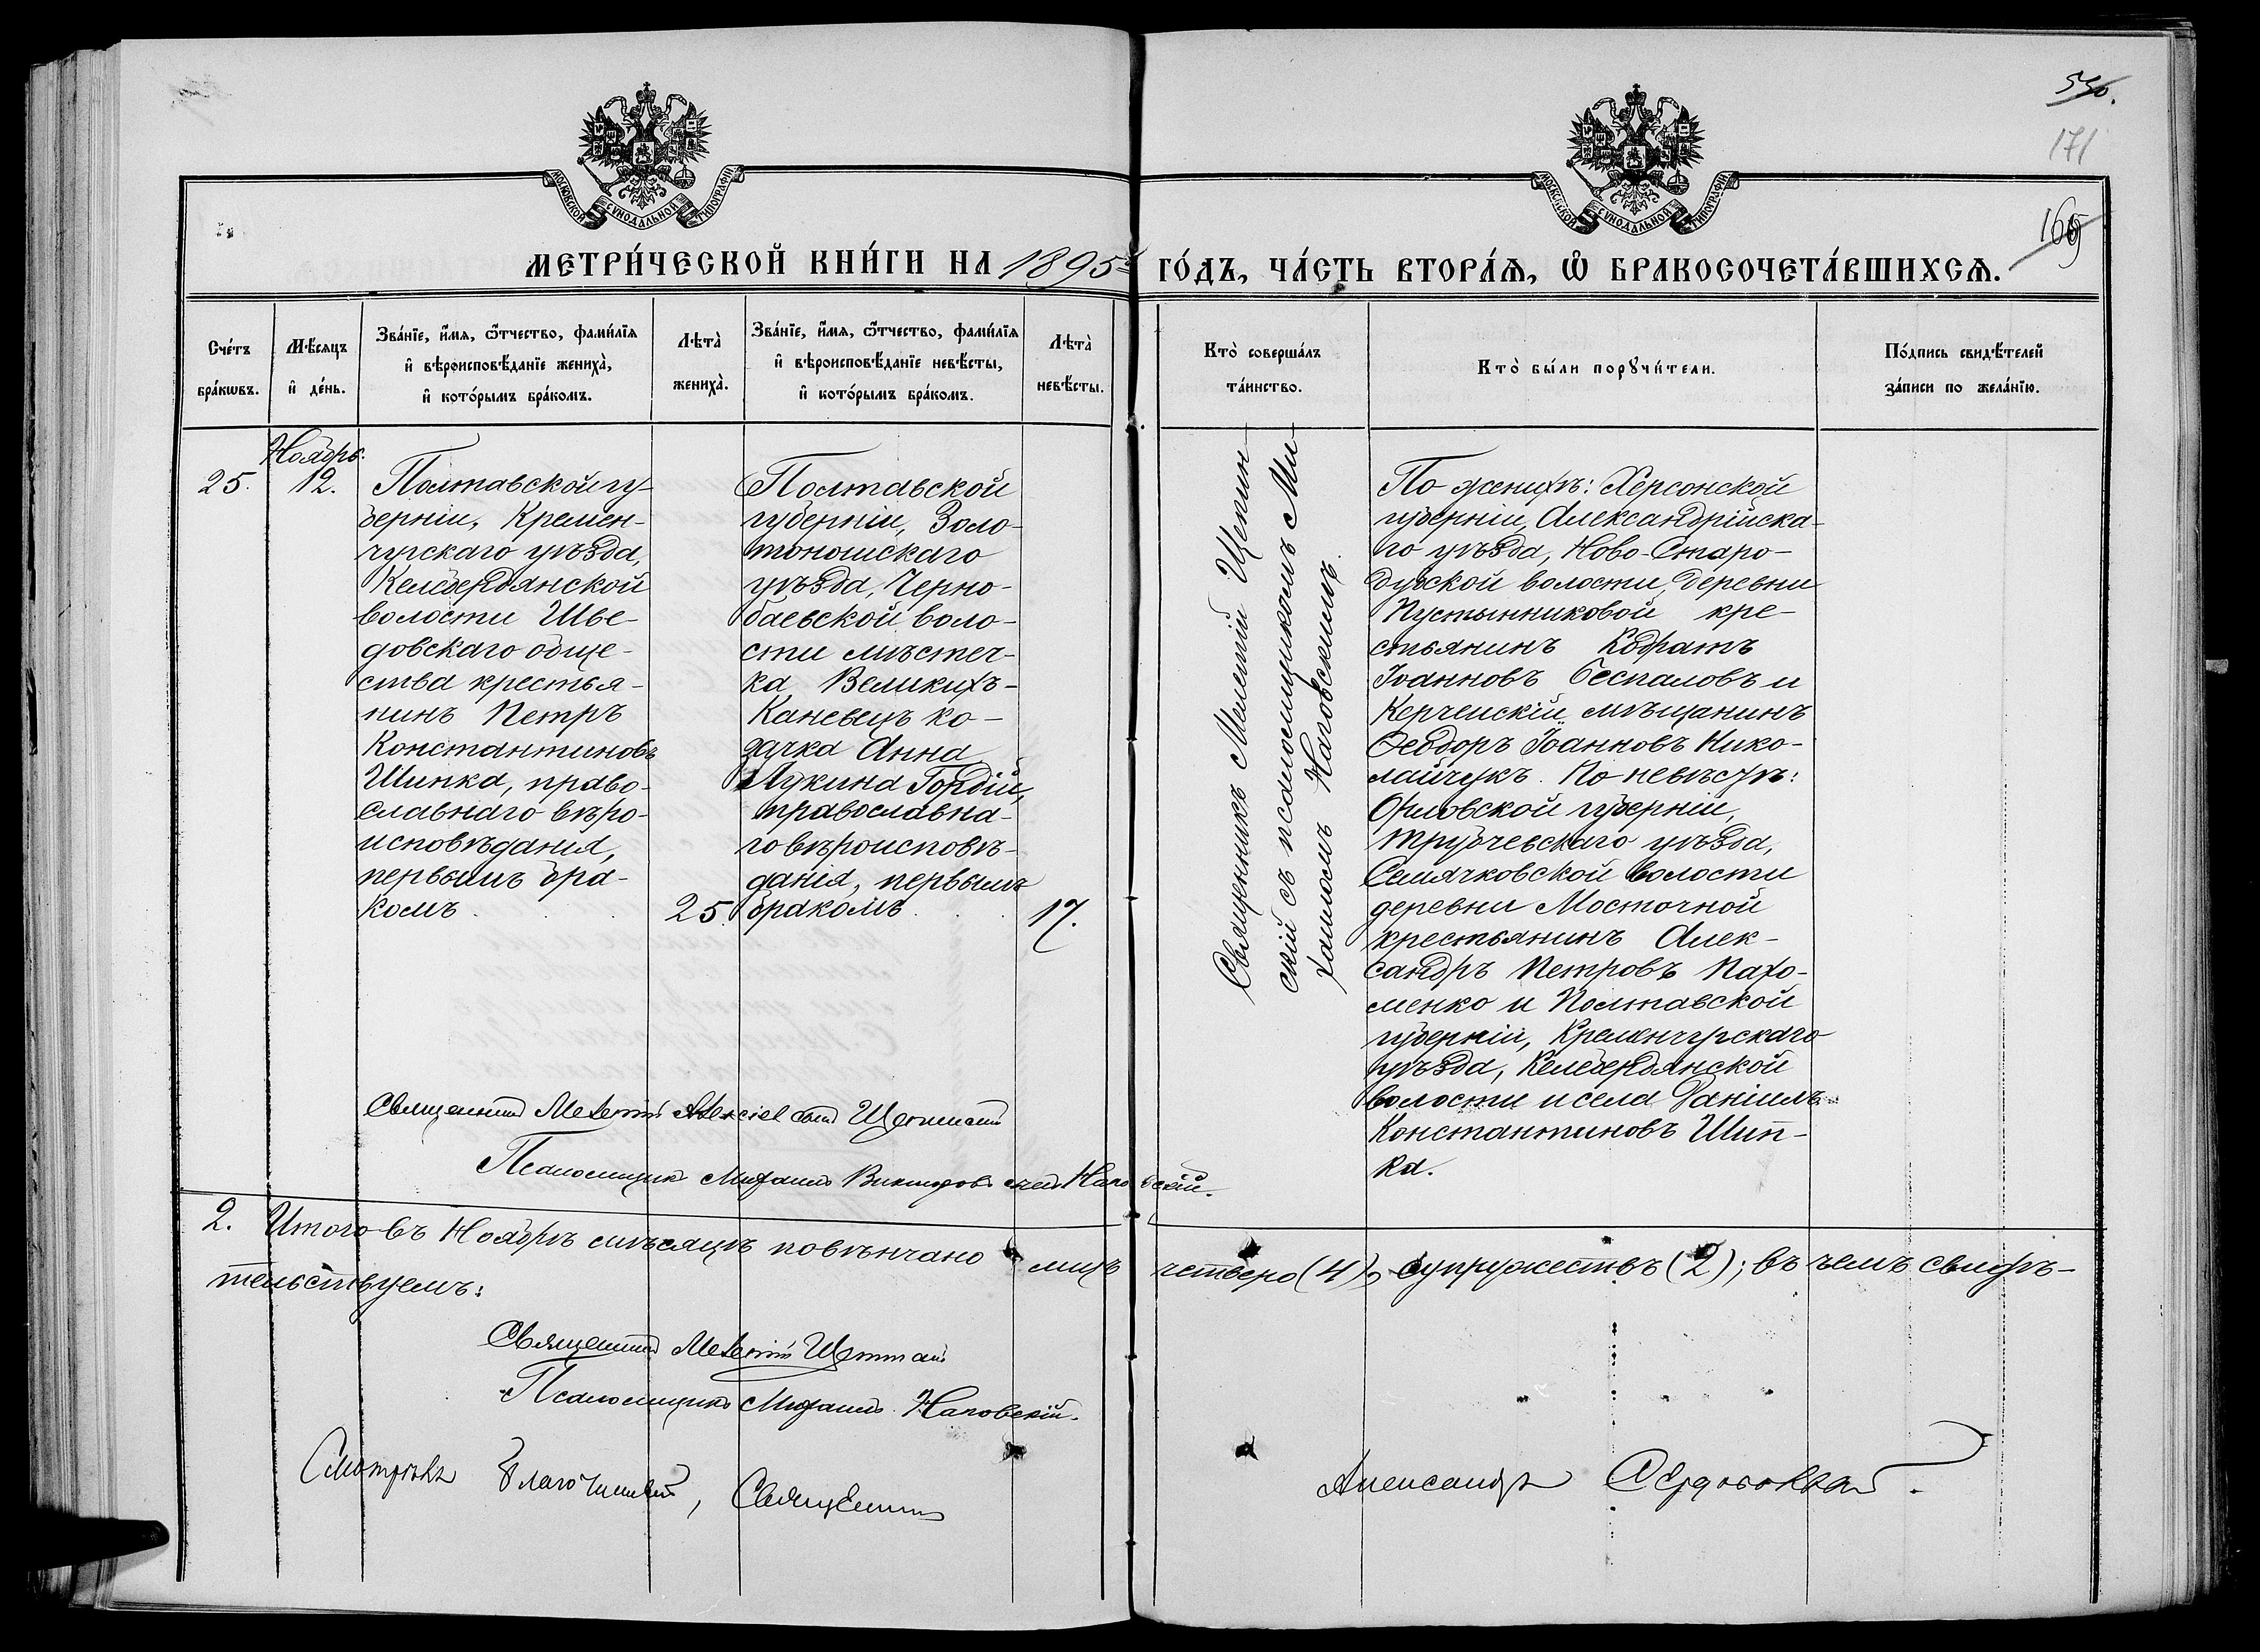 530.
171
169
МОСКОВСКОЙ СѴНОДАЛЬНОЙ ТИПОГРАФІИ
МОСКОВСКОЙ СѴНОДАЛЬНОЙ ТИПОГРАФІИ
МЕТРИ́ЧЕСКОЙ КНИ́ГИ НА 1895й ГО́ДЪ, ЧА́СТЬ ВТОРА́Ѧ, Ѽ БРАКОСОЧЕТА́ВШИХСѦ.
Сче́тъ
бра́кѡвъ.
Мѣ́сяцъ
и҆ де́нь.
Зва́нїе, и҆́мя, ѻ҆́тчество, фами́лїя
и҆ вѣроисповѣ́данїе жениха̀,
и҆ кото́рымъ бра́комъ.
Лѣта̀
жениха̀.
Зва́нїе, и҆́мя, ѻ҆́тчество, фами́лїя
и҆ вѣроисповѣ́данїе невѣ́сты,
и҆ кото́рымъ бра́комъ.
Лѣта̀
невѣ́сты.
Кто̀ соверша́лъ
та́инство.
Кто̀ бы́ли порꙋчи́тели.
По́дпись свидѣ́телей
за́писи по жела́нїю.
25.
Ноябрь.
12.
Полтавской гу-
берніи, Кремен-
чугскаго уѣзда,
Келебердянской
волости Шве-
довскаго обще-
ства крестья-
нинъ Петръ
Константиновъ
Шипка, право-
славнаго вѣро-
исповѣданія,
первымъ бра-
комъ
25.
Полтавской
губерніи, Золо-
тоношскаго
уѣзда, Черно-
баевской воло-
сти мѣстеч-
ка Великихъ-
Каневецъ ко-
зачка Анна
Лукина Гордій,
православна-
го вѣроисповѣ-
данія, первымъ
бракомъ
17.
Священникъ Мелетій Щепин-
скій съ псаломщикомъ Ми-
хаиломъ Наговскимъ.
По женихѣ: Херсонской
губерніи, Александрійска-
го уѣзда, Ново-Старо-
дубской волости, деревни
Пустынниковой кре-
стьянинъ Кодратъ
Іоанновъ Беспаловъ и
Керченскій мѣщанинъ
Ѳеодоръ Іоанновъ Нико-
лайчукъ. По невѣстѣ:
Орловской губерніи,
Трубчевскаго уѣзда,
Семячковской волости
деревни Мосточной
крестьянинъ Алек-
сандръ Петровъ Пахо-
менко и Полтавской
губерніи, Кременчугскаго
уѣзда, Келебердянской
волости и села Даніилъ
Константиновъ Шип-
ка.
Священникъ Мелетій Алексіевъ сынъ Щепинскій
Псаломщикъ Михаилъ Викторовъ сынъ Наговскій.
2. Итого въ Ноябрѣ мѣсяцѣ повѣнчано лицъ четверо (4), супружествъ (2); въ чемъ свидѣ-
тельствуемъ:
Священникъ Мелетій Щепинскій
Псаломщикъ Михаилъ Наговскій.
Смотрѣлъ Благочинный, Священникъ Александръ